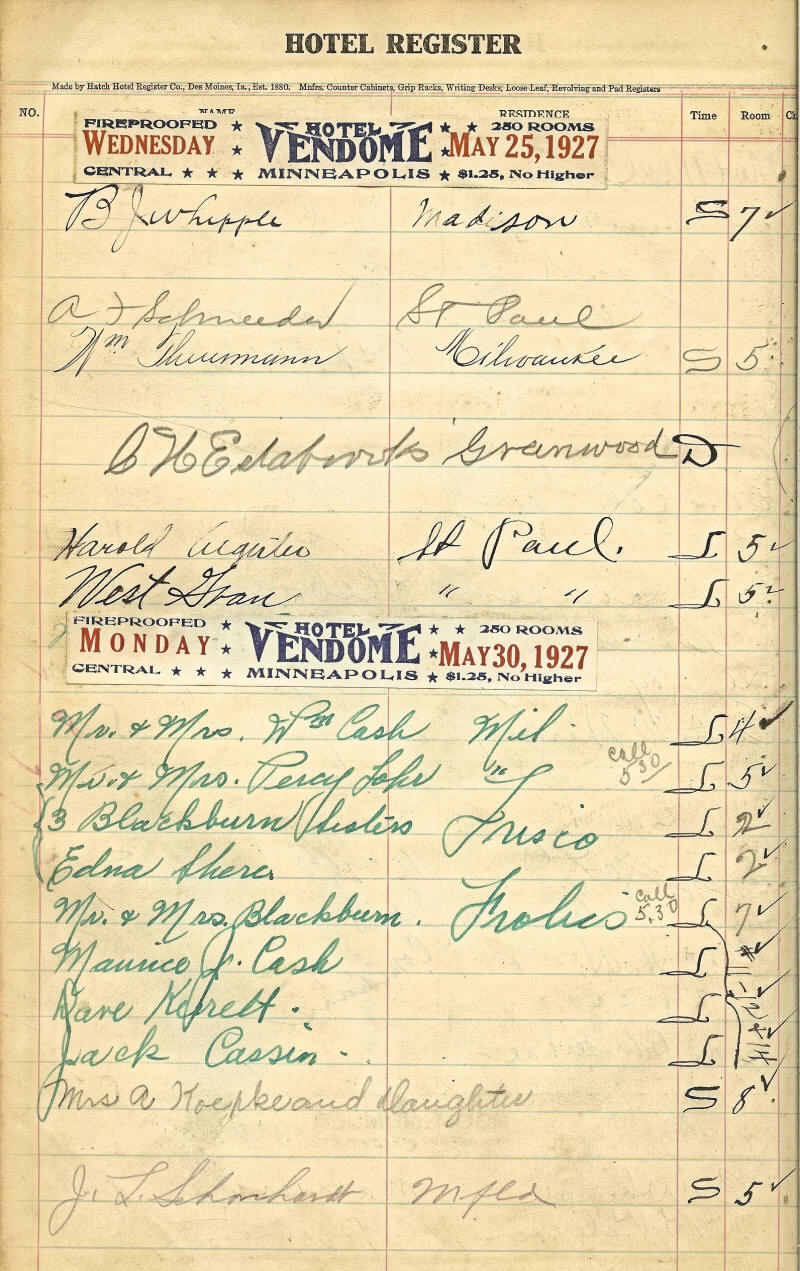 HOTEL REGISTER
Made by Hatch Hotel Register Co., Des Moines, Ia., Est. 1880. Mnfrs. Counter Cabinets, Grip Racks, Writing Desks, Loose Leaf, Revolving and Pad Registers
NO. NAME RESIDENCE Time Room
FIREPROOFED ★ HOTEL ★ ★ 250 ROOMS
WEDNESDAY ★ VENDOME ★ MAY 25, 1927
CENTRAL ★ ★ ★ MINNEAPOLIS ★ $1.25, No Higher
B J Whipple Madison S 7 ✓
A F Schneeder St Paul
Wm Thurmann Milwaukee S 5
C H Estabrooks Granwood D
Harold St Paul. L 5 ✓
West Gran " " L 5 ✓
FIREPROOFED ★ HOTEL ★ ★ 250 ROOMS
MONDAY ★ VENDOME ★ MAY 30, 1927
CENTRAL ★ ★ ★ MINNEAPOLIS ★ $1.25, No Higher
Mr. & Mrs. Wm Cash Mil. L 4 ✓
Mr. & Mrs. Percy Lohr " call 5 30 L 5 ✓
3 Blackburn Sisters Frisco L 2 ✓
Edna L 2 ✓
Mr. & Mrs. Blackburn. Frolics call 5,30 L 7 ✓
Maurice J. Cash L
Dave L #11-12 & 14
Jack Cassin. L
Mrs A Koepke and Daughter S 8 ✓
J. L. Schonhardt Mfld S 5 ✓